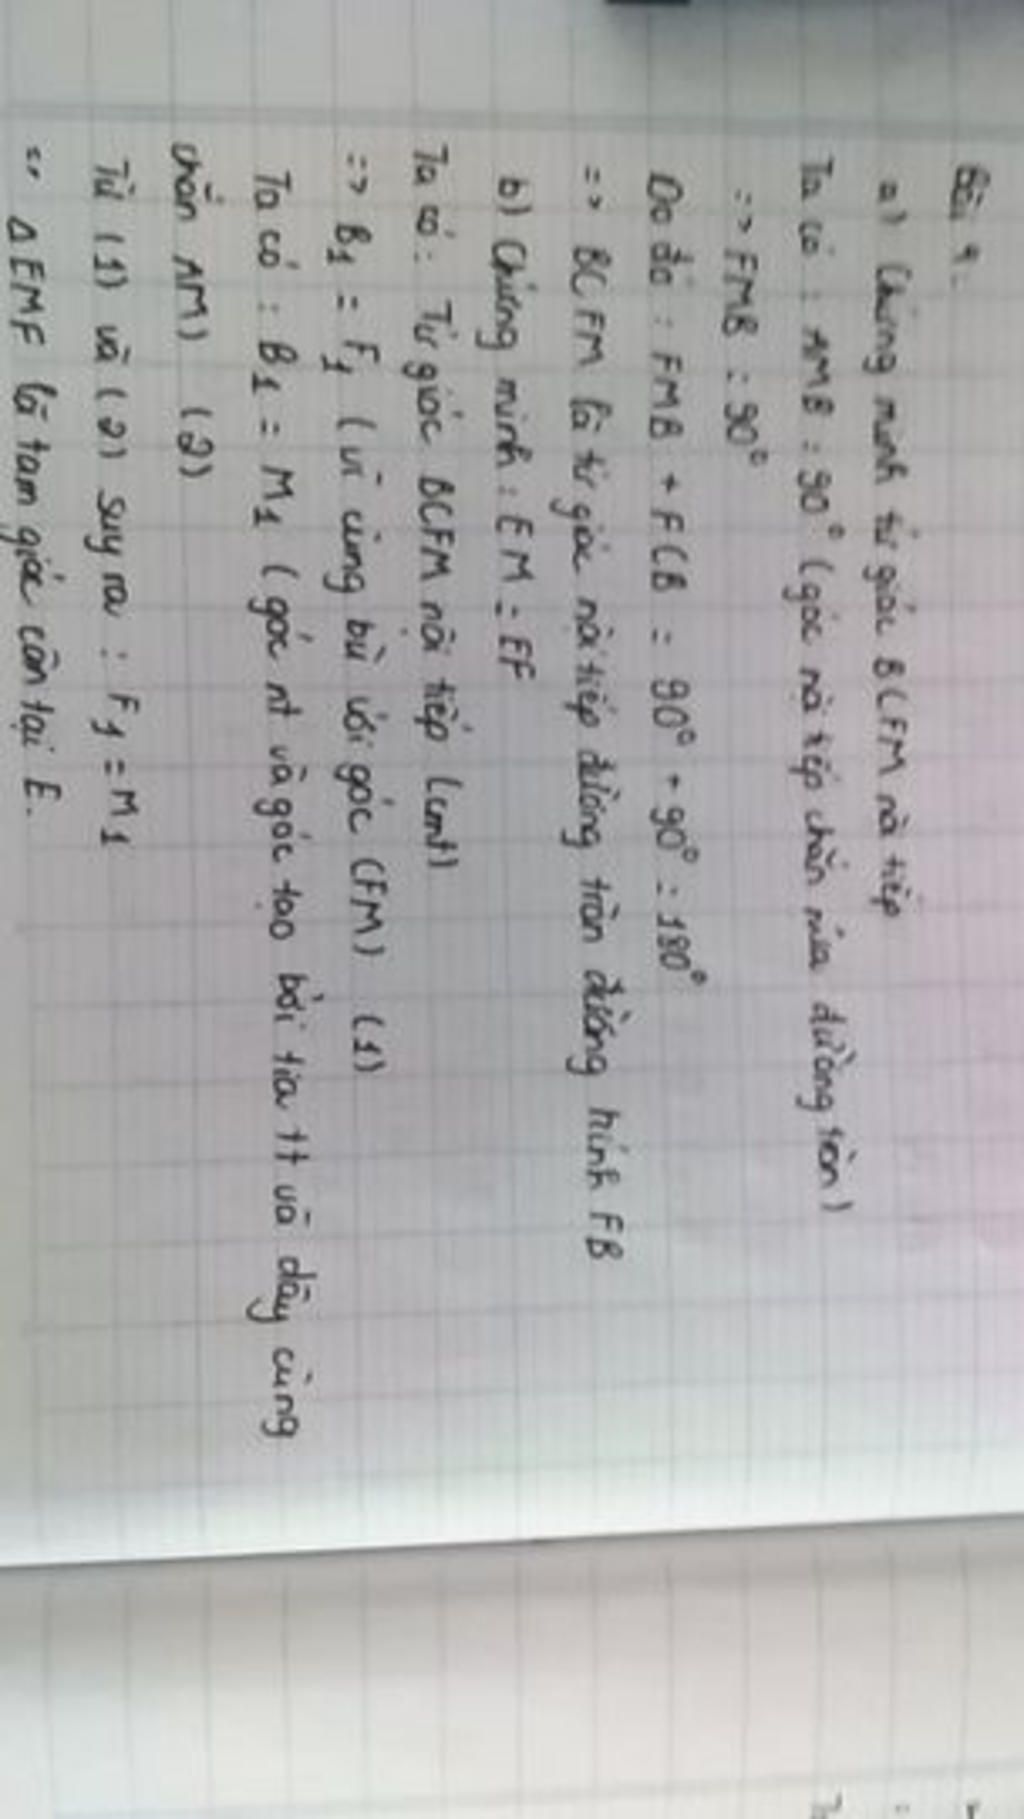 Bài 4.
a) Chứng minh tứ giác BCFM nội tiếp
Ta có : AMB = 90° (góc nội tiếp chắn nửa đường tròn)
=> FMB = 90°
Do đó : FMB + FCB = 90° + 90° = 180°
=> BCFM là tứ giác nội tiếp đường tròn đường hính FB
b) Chứng minh : EM = EF
Ta có : Tứ giác BCFM nội tiếp (cmt)
=> B1 = F1 (vì cùng bù với góc CFM) (1)
Ta có : B1 = M1 (góc nt và góc tạo bởi tia tt và dây cùng
chắn AM) (2)
Từ (1) và (2) suy ra : F1 = M1
=> Δ EMF là tam giác cân tại E.